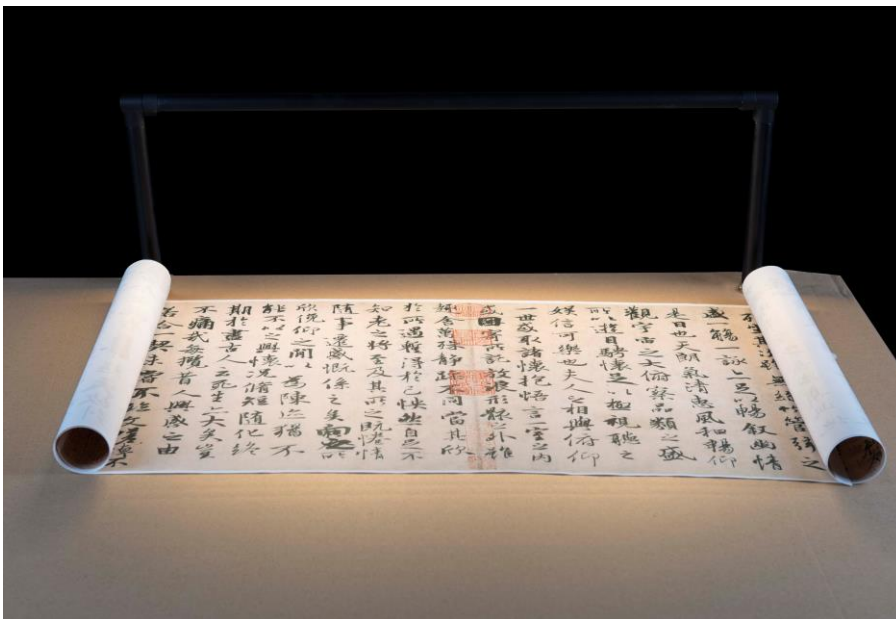 坐其次雖無絲竹管弦之
盛一觴一詠亦足以暢叙幽情
是日也天朗氣清惠風和暢仰
觀宇宙之大俯察品類之盛
所以遊目騁懷足以極視聽之
娛信可樂也夫人之相與俯仰
一世或取諸懷抱悟言一室之内
或因寄所託放浪形骸之外雖
趣舍萬殊靜躁不同當其欣
於所遇暫得於己快然自足不
知老之將至及其所之既惓情
隨事遷感慨係之矣向之所
欣俛仰之閒以為陳迹猶不
能不以之興懷況脩短隨化終
期於盡古人云死生亦大矣豈
不痛哉每攬昔人興感之由
若合一契未嘗不臨文嗟悼不